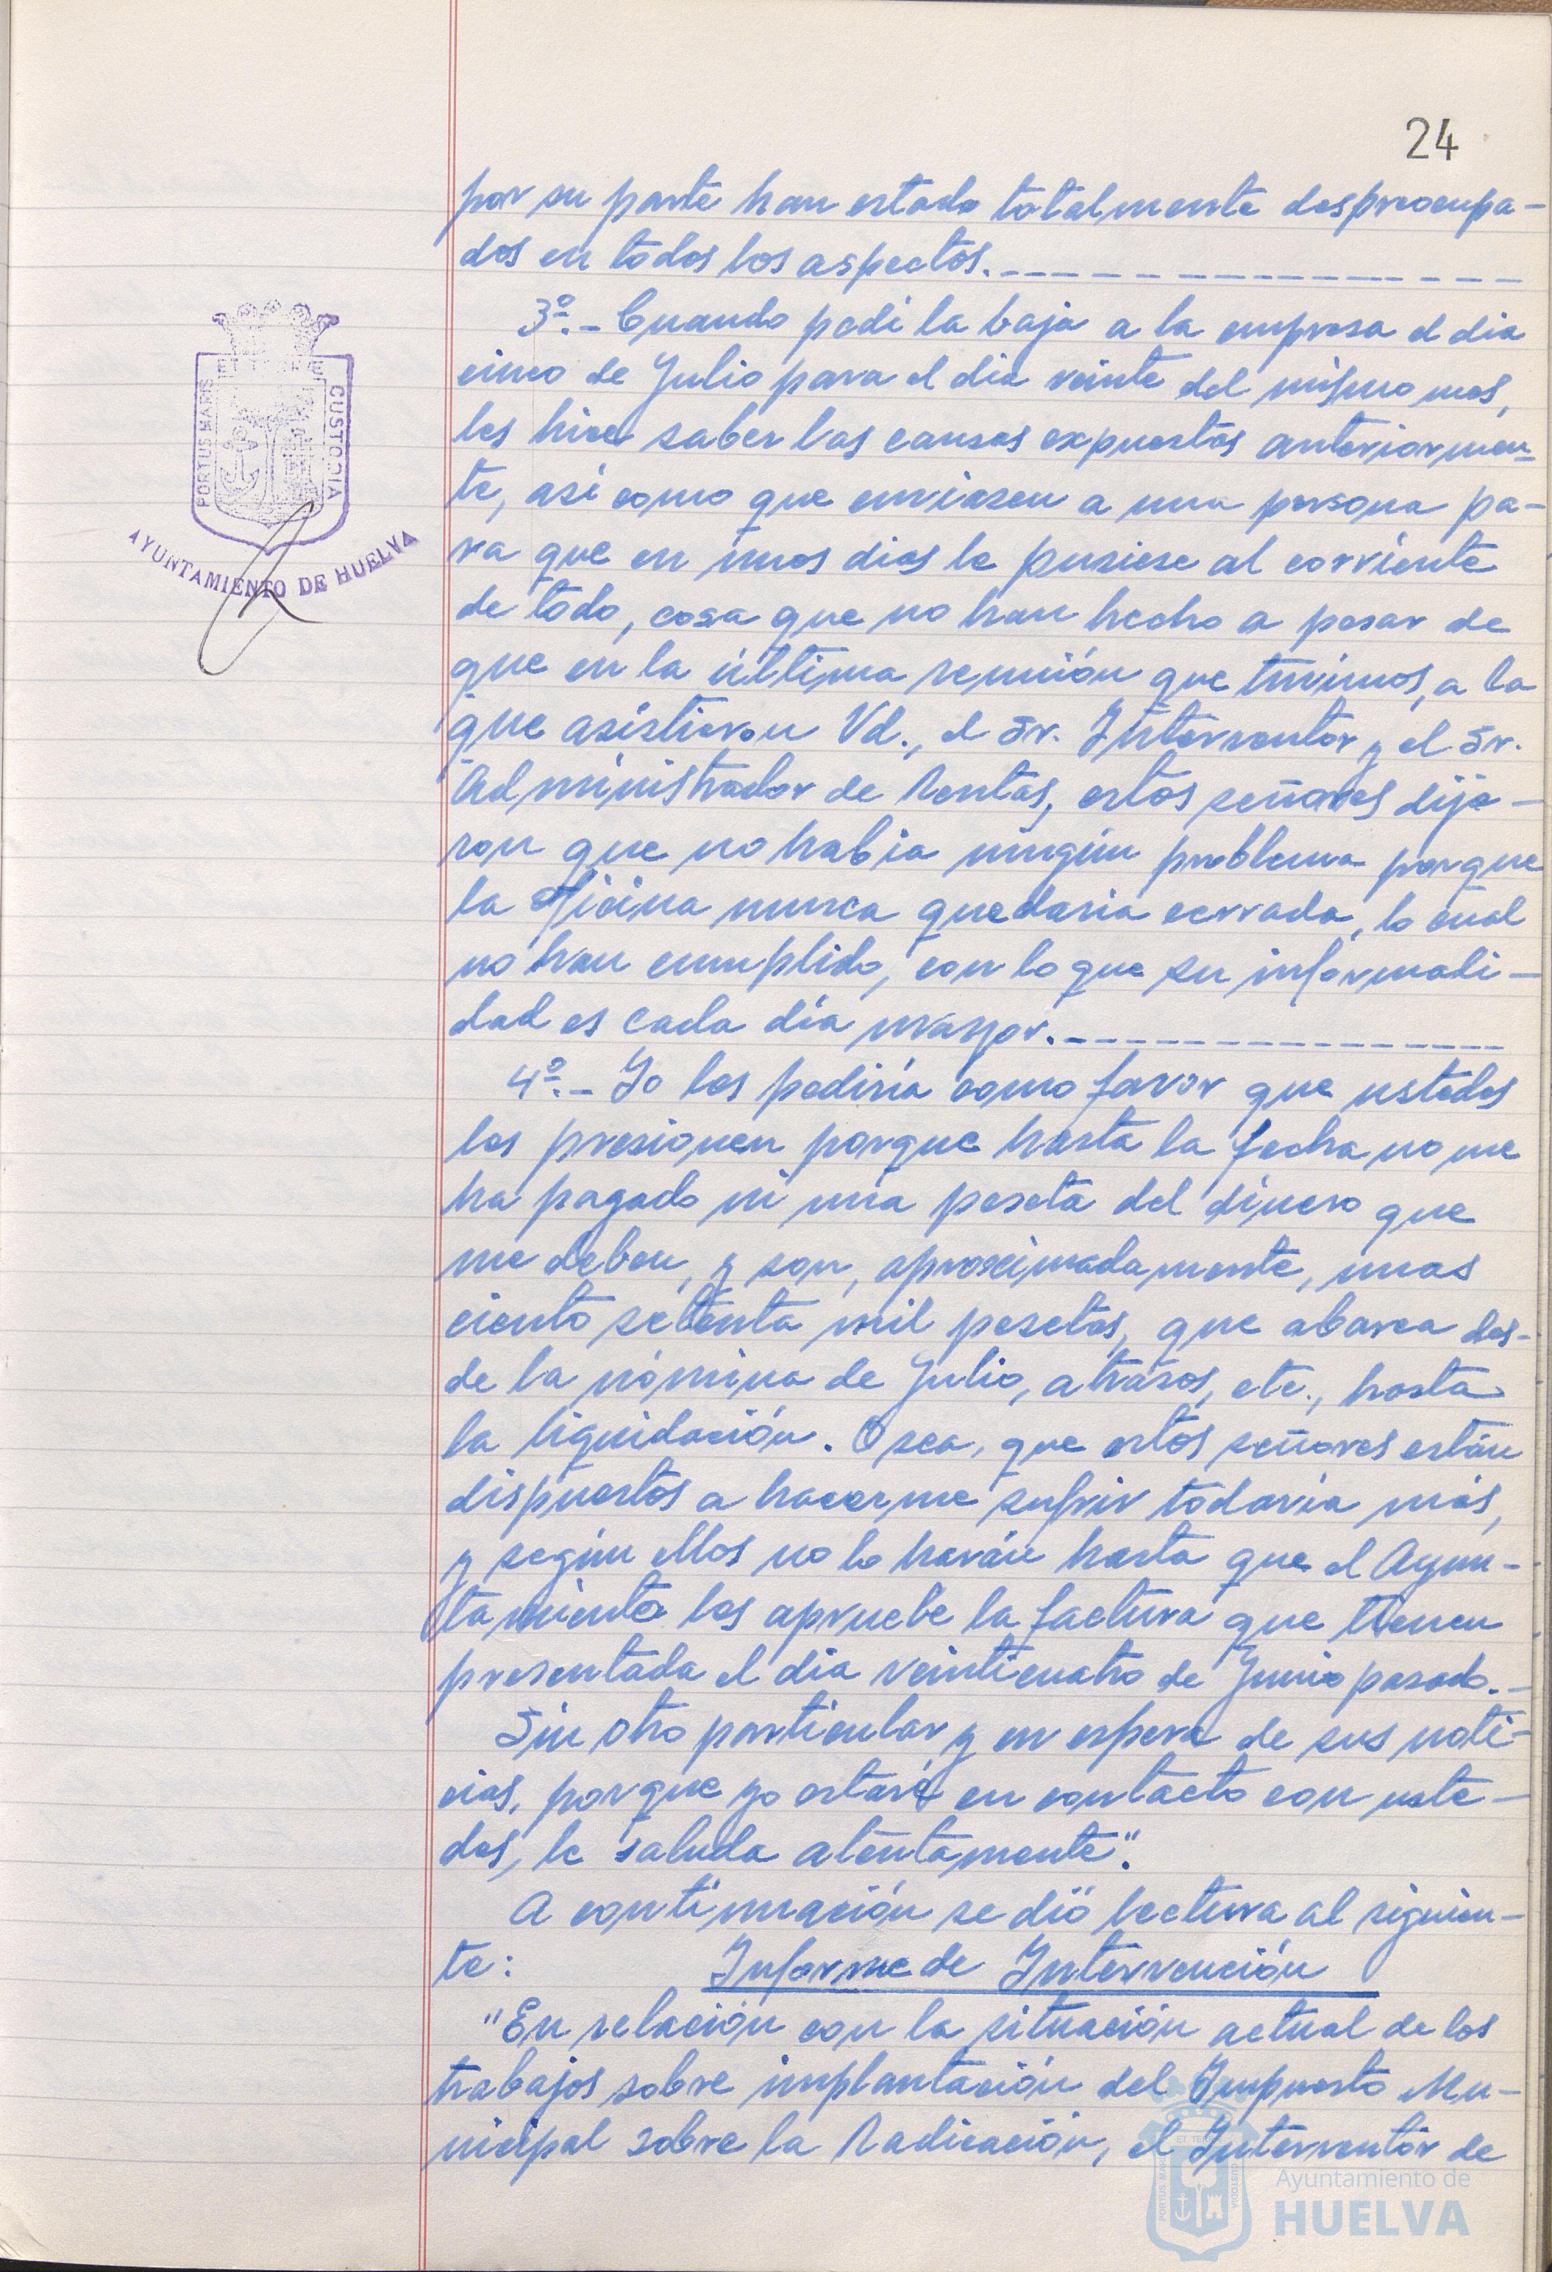 24
por su parte han estado totalmente despreocupa-
dos en todos los aspectos.
3º.- Cuando pedí la baja a la empresa el dia
cinco de Julio para el dia veinte del mismo mes,
les hice saber las causas expuestas anteriormen-
te, así como que enviasen a una persona pa-
ra que en unos dias le pusiese al corriente
de todo, cosa que no han hecho a pesar de
que en la última reunión que tuvimos, a la
que asistieron Vd., el Sr. Interventor y el Sr.
Administrador de Rentas, estos señores dije-
ron que no habia ningún problema porque
la oficina nunca quedaria cerrada, lo cual
no han cumplido, con lo que su informali-
dad es cada día mayor.
4º.- Yo les pediría como favor que ustedes
les presionen porque hasta la fecha no me
ha pagado ni una peseta del dinero que
me deben, y son, aproximadamente, unas
ciento setenta mil pesetas, que abarca des-
de la nómina de Julio, atrasos, etc., hasta
la liquidación. O sea, que estos señores están
dispuestos a hacerme sufrir todavía más,
y según ellos no lo harán hasta que el Ayun-
tamiento les apruebe la factura que tienen
presentada el dia veinticuatro de Junio pasado.-
Sin otro particular y en espera de sus noti-
cias, porque yo estaré en contacto con uste-
des, le saluda atentamente".
A continuación se dió lectura al siguien-
te: Informe de Intervención
"En relación con la situación actual de los
trabajos sobre implantación del Impuesto Mu-
nicipal sobre la Radicación, el Interventor de
PORTUS MARIS
CUSTODIA
AYUNTAMIENTO DE HUELVA
Ayuntamiento de
HUELVA